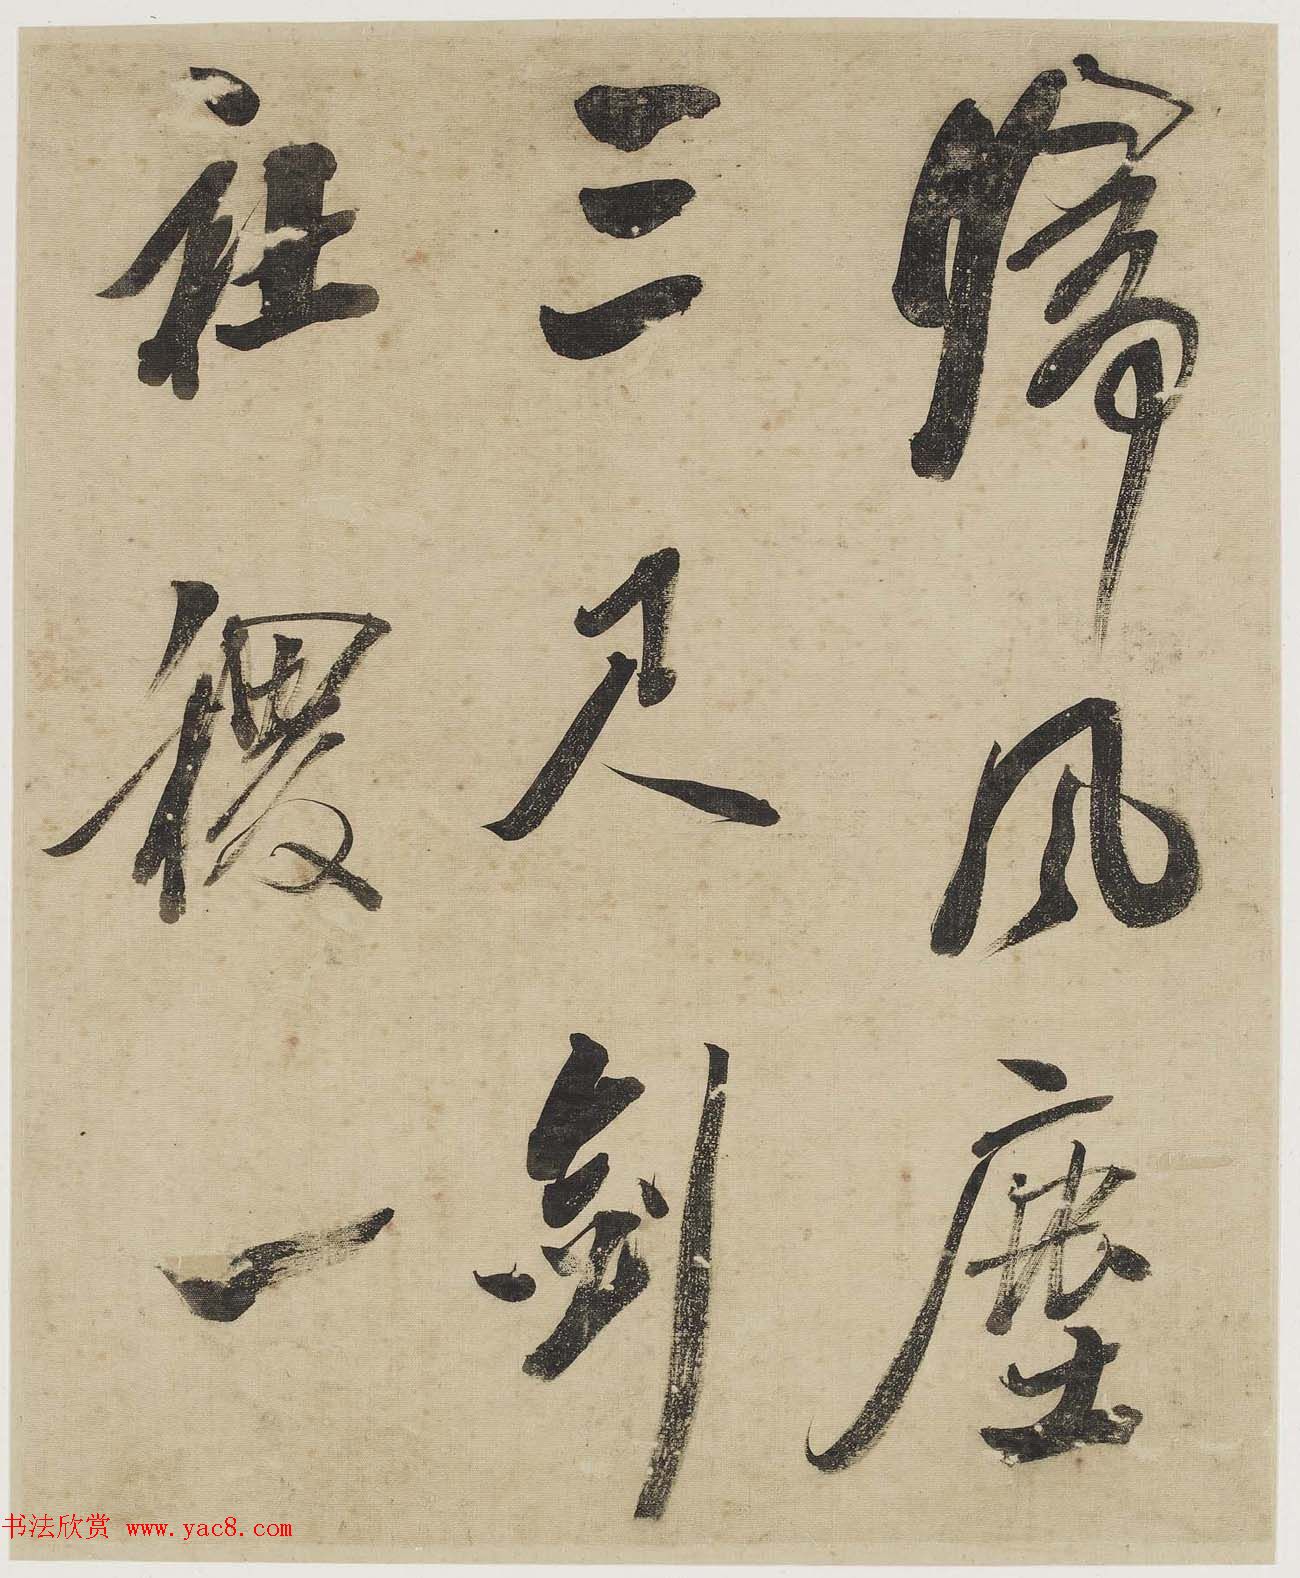 歸風塵
三尺劍
社稷一
书法欣赏 www.yac8.com